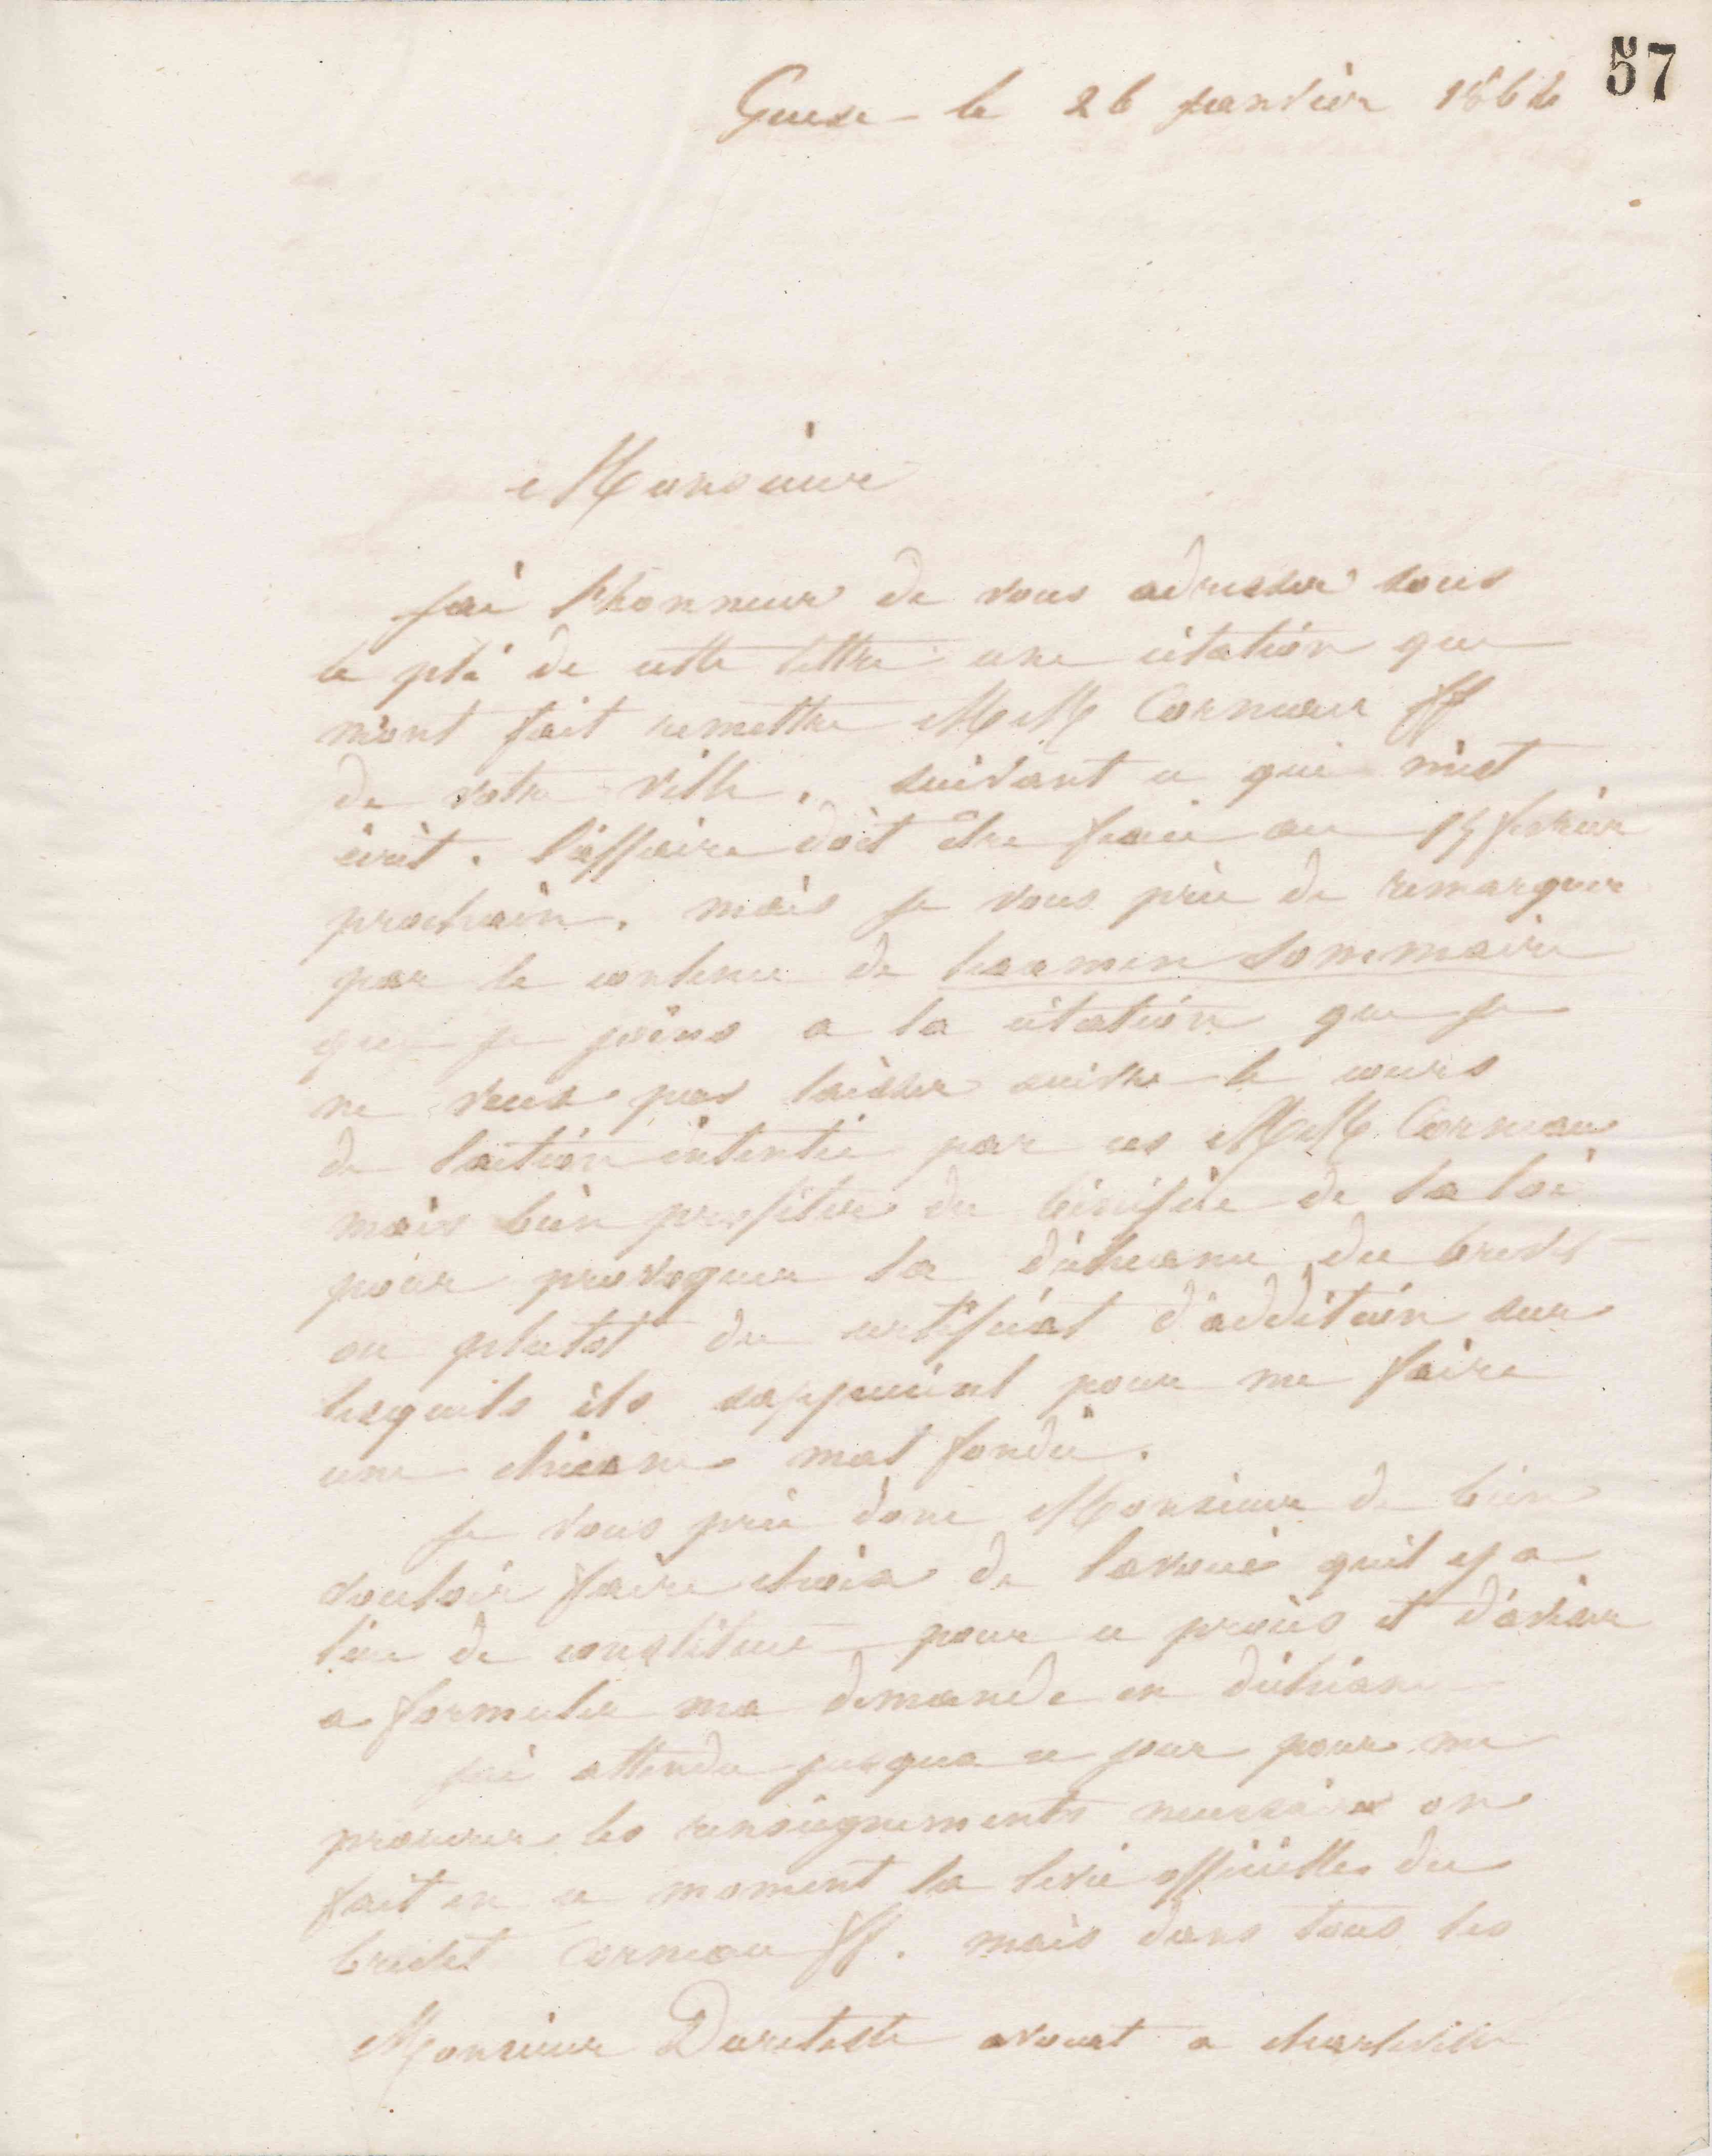 57
Guise le 26 janvier 1864
Monsieur
jai lhonneur de vous adresser sous
ce pli de cette lettre une citation que
m'ont fait remettre MM Corneau ff
de votre ville. suivant ce qui m'est
écrit. l'affaire doit être fixée au 15 février
prochain. mais je vous prie de remarquer
par le contenu de lexamen sommaire
que je joins a la citation que je
ne veux pas laisser suivre le cours
de laction intentée par ces MM. Corneau
mais bien profiter du bénéfice de la loi
pour provoquer la déchéance du brevet
ou plutot du certificat d'addition sur
lesquels ils sappuient pour me faire
une chicane mal fondée.
je vous prie donc Monsieur de bien
vouloir faire choix de lavoué quil y a
lieu de constituer pour ce procès et d'aviser
a formuler ma demande en déchéance
jai attendu jusqua ce jour pour me
procurer les renseignements necessaires on
fait en ce moment la levée officielle du
brevet Corneau ff. mais dans tous les
Monsieur avocat a charleville